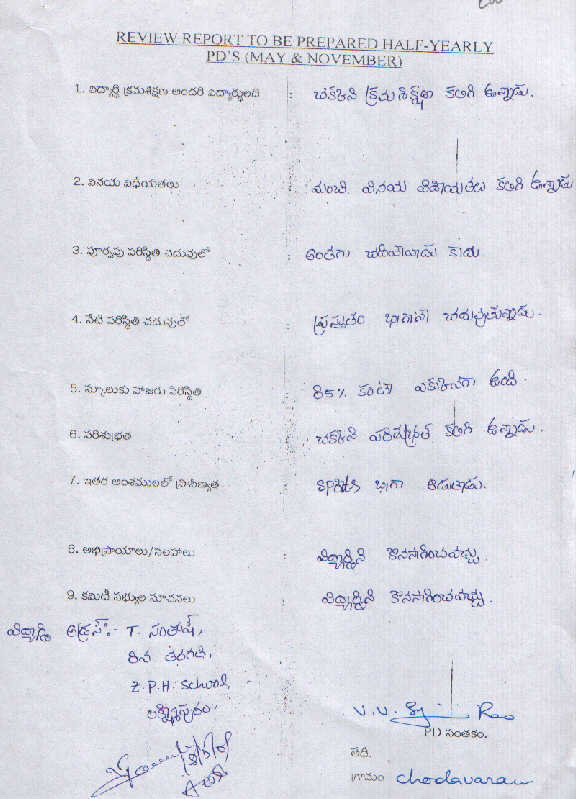 REVIEW REPORT TO BE PREPARED HALF-YEARLY
PD'S (MAY & NOVEMBER)
1. విద్యార్థి క్రమశిక్షణ అందరి విద్యార్థులది : చక్కని క్రమశిక్షణ కలిగి ఉన్నాడు.
2. వినయ విధేయతలు : మంచి వినయ విధేయతలు కలిగి ఉన్నాడు
3. పూర్వపు పరిస్థితి చదువులో : అంతగా చదివేవాడు కాదు
4. నేటి పరిస్థితి చదువులో : ప్రస్తుతం బాగానే చదువుతున్నాడు.
5. స్కూలుకు హాజరు పరిస్థితి : 85% కంటె ఎక్కువగా ఉంది.
6. పరిశుభ్రత : చక్కని పరిశుభ్రత కలిగి ఉన్నాడు.
7. ఇతర అంశములలో ప్రావీణ్యత : బాగా ఆడుతాడు.
8. అభిప్రాయాలు/సలహాలు : విద్యార్థిని కొనసాగించవచ్చు.
9. కమిటీ సభ్యుల సూచనలు : విద్యార్థిని కొనసాగించవచ్చు.
విద్యార్థి అడ్రస్:- T. సంతోష్,
8వ తరగతి,
Z.P.H. School,
లక్ష్మీపురం.
V.V. Rao
PD సంతకం.
తేది.
గ్రామం Chodavaram